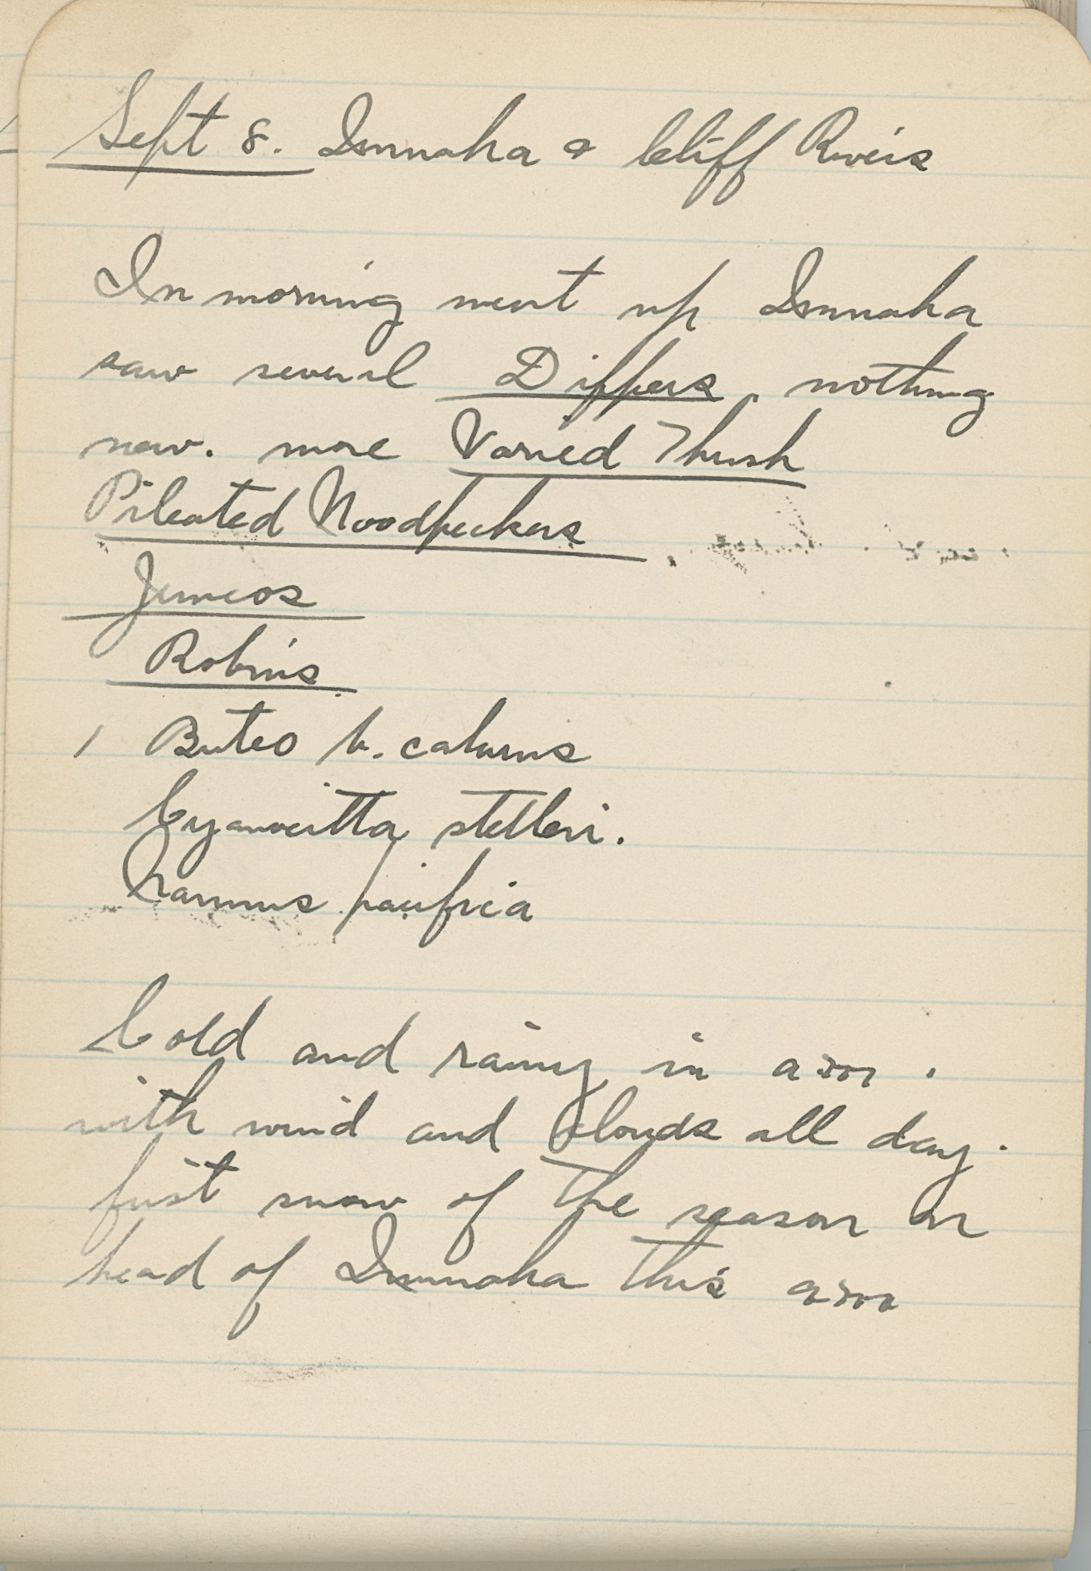 Sept 8. Imnaha & Cliff Rivers
In morning went up Imnaha
saw several Dippers, nothing
new. more Varied Thrush
Pileated Woodpeckers
Juncos
Robins
1 Buteo b. calurus
Cyanocitta stelleri.
Nannus pacifica
Cold and rainy in a.m.
with wind and clouds all day.
first snow of the season on
head of Imnaha this a.m.